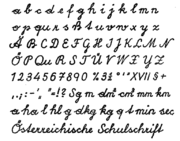 a b c d e f g h i j k l m n
o p q u r s ß t u v w x y z
A B C D E F G H I J K L M N
Ö P Qu R S T Ü V W X Y Z
1 2 3 4 5 6 7 8 9 0 % XVII § +
. , ; : - ' „ " = ! ? Sg m dm² cm² mm km
a ha l hl g dkg kg q t min sec
Österreichische Schulschrift